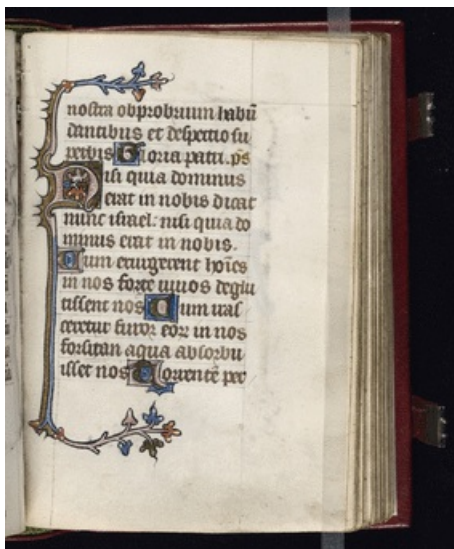 nostra obprobrium habū
dantibus et despectio su
perbis Gloria patri. ps̄
Nisi quia dominus
erat in nobis dicat
nunc israel: nisi quia do
minus erat in nobis.
Cum exurgerent hoīes
in nos forte uiuos deglu
tissent nos Cum iras
ceretur furor eoꝝ in nos
forsitan aqua absorbu
isset nos Torrentē per